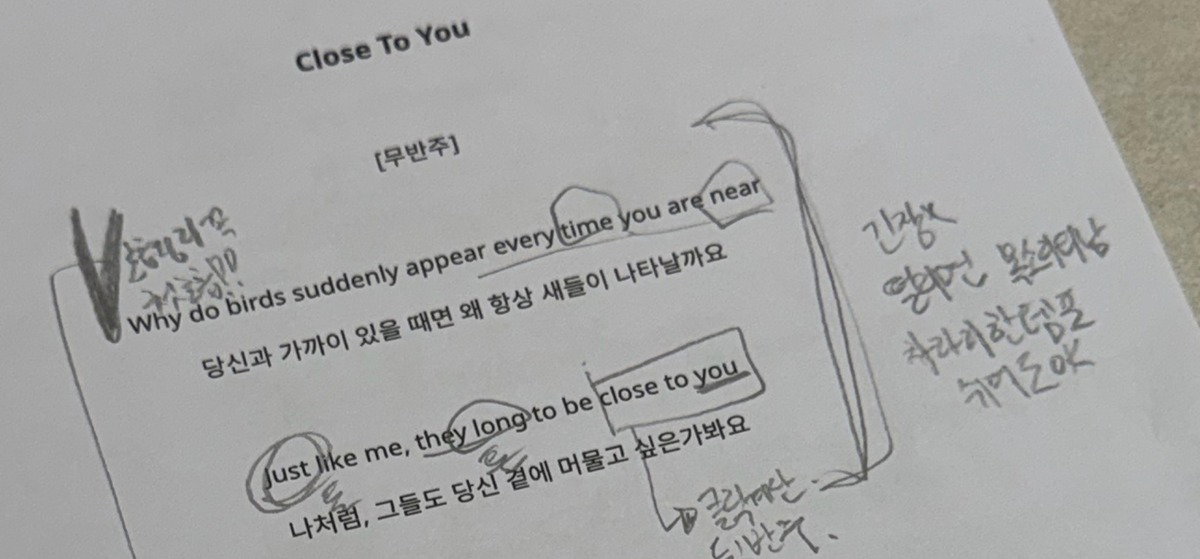 Close To You
[무반주]
Why do birds suddenly appear every time you are near
당신과 가까이 있을 때면 왜 항상 새들이 나타날까요
Just like me, they long to be close to you
나처럼, 그들도 당신 곁에 머물고 싶은가봐요
긴장x
떨리면 목소리티남
차라리 한템포
쉬어도 OK